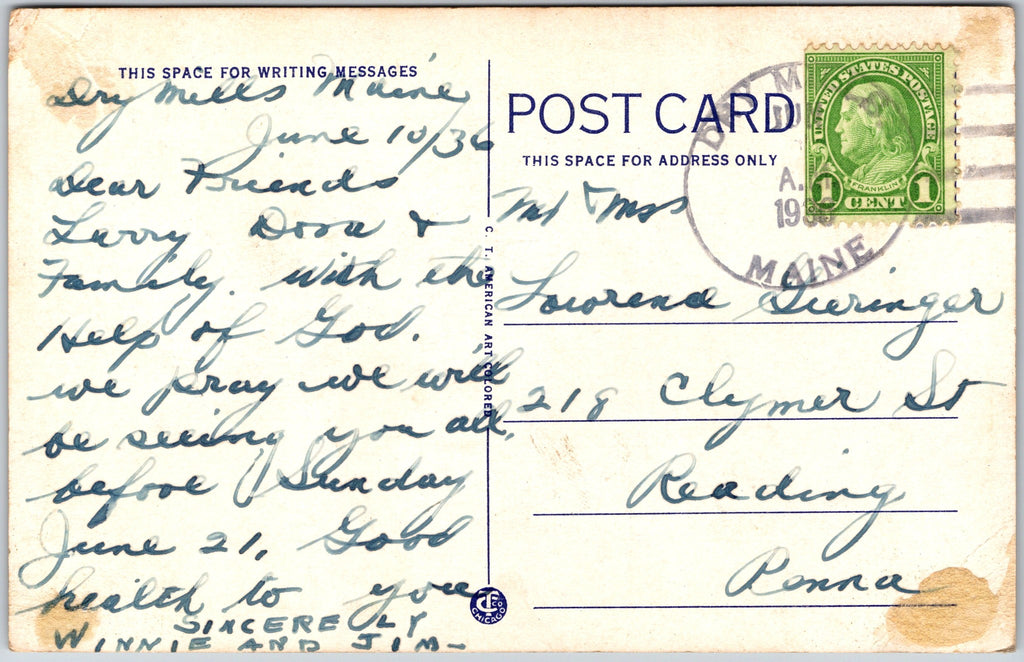 THIS SPACE FOR WRITING MESSAGES
Dry Mills Maine
June 10/36
Dear Friends
Larry Dora &
Family. with the
Help of God.
we pray we will
be seeing you all,
before Sunday
June 21. Good
health to you
SINCERELY
WINNIE AND JIM-
C. T. AMERICAN ART COLORED
CT CO
CHICAGO
POST CARD
THIS SPACE FOR ADDRESS ONLY
DRY M
A.
MAINE
UNITED STATES POSTAGE
FRANKLIN
1 CENT 1
Mr & Mrs
Lawrence Gieringer
218 Clymer St
Reading
Penna